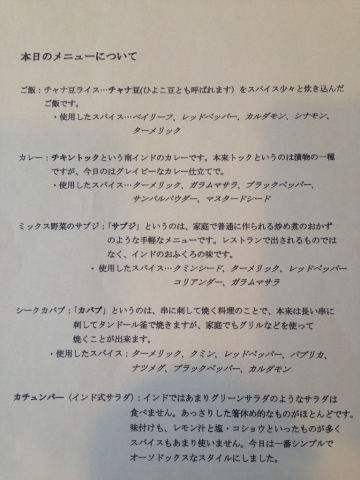 本日のメニューについて
ご飯：チャナ豆ライス…チャナ豆(ひよこ豆とも呼ばれます）をスパイス少々と炊き込んだ
ご飯です。
・使用したスパイス…ベイリーフ、レッドペッパー、カルダモン、シナモン、
ターメリック
カレー：チキントックという南インドのカレーです。本来トックというのは漬物の一種
ですが、今日のはグレイビーなカレー仕立てで。
・使用したスパイス…ターメリック、ガラムマサラ、ブラックペッパー、
サンバルパウダー、マスタードシード
ミックス野菜のサブジ：「サブジ」というのは、家庭で普通に作られる炒め煮のおかず
のような手軽なメニューです。レストランで出されるものでは
なく、インドのおふくろの味です。
・使用したスパイス…クミンシード、ターメリック、レッドペッパー
コリアンダー、ガラムマサラ
シークカバブ：「カバブ」というのは、串に刺して焼く料理のことで、本来は長い串に
刺してタンドール釜で焼きますが、家庭でもグリルなどを使って
焼くことが出来ます。
・使用したスパイス：ターメリック、クミン、レッドペッパー、パプリカ、
ナツメグ、ブラックペッパー、カルダモン
カチュンバー（インド式サラダ）：インドではあまりグリーンサラダのようなサラダは
食べません。あっさりした箸休め的なものがほとんどです。
味付けも、レモン汁と塩・コショウといったものが多く
スパイスもあまり使いません。今日は一番シンプルで
オーソドックスなスタイルにしました。